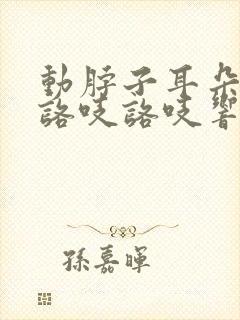 動脖子耳朵
詻吱詻吱響
孫嘉暉